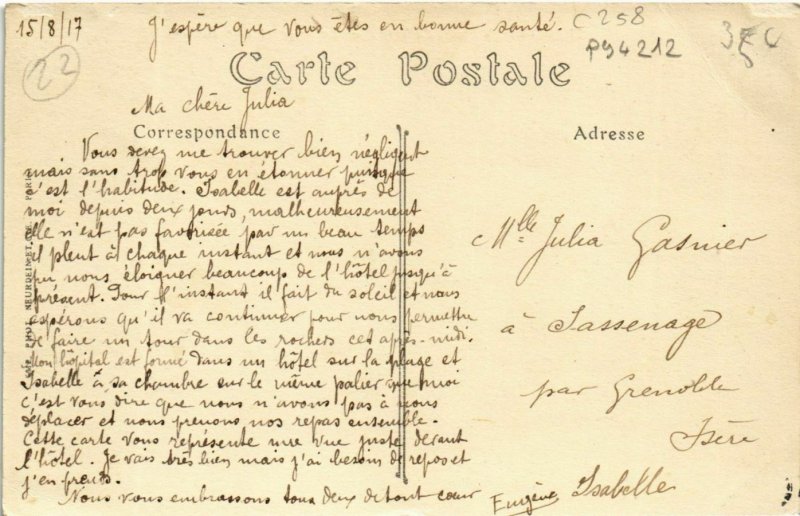 15/8/17
J'espère que vous êtes en bonne santé.
C 258
P94212
22
Carte Postale
Ma chère Julia
Correspondance
Adresse
Vous devez me trouver bien négligent
mais sans trop vous en étonner puisque
c'est l'habitude. Isabelle est auprès de
moi depuis deux jours, malheureusement
elle n'est pas favorisée par un beau temps
il pleut à chaque instant et nous n'avons
pu nous éloigner beaucoup de l'hôtel jusqu'à
présent. Pour l'instant il fait du soleil et nous
espérons qu'il va continuer pour nous permettre
de faire un tour dans les rochers cet après-midi.
Mon hôpital est formé dans un hôtel sur la plage et
Isabelle à sa chambre sur le même palier que moi
c'est vous dire que nous n'avons pas à nous
déplacer et nous prenons nos repas ensemble.
Cette carte vous représente une vue juste devant
l'hôtel. Je vais très bien mais j'ai besoin de repos et
j'en prends.
Nous vous embrassons tous deux de tout cœur
Eugène Isabelle
Mlle Julia Gasnier
à Sassenage
par Grenoble
Isère
PHOT. NEURDEIN ET